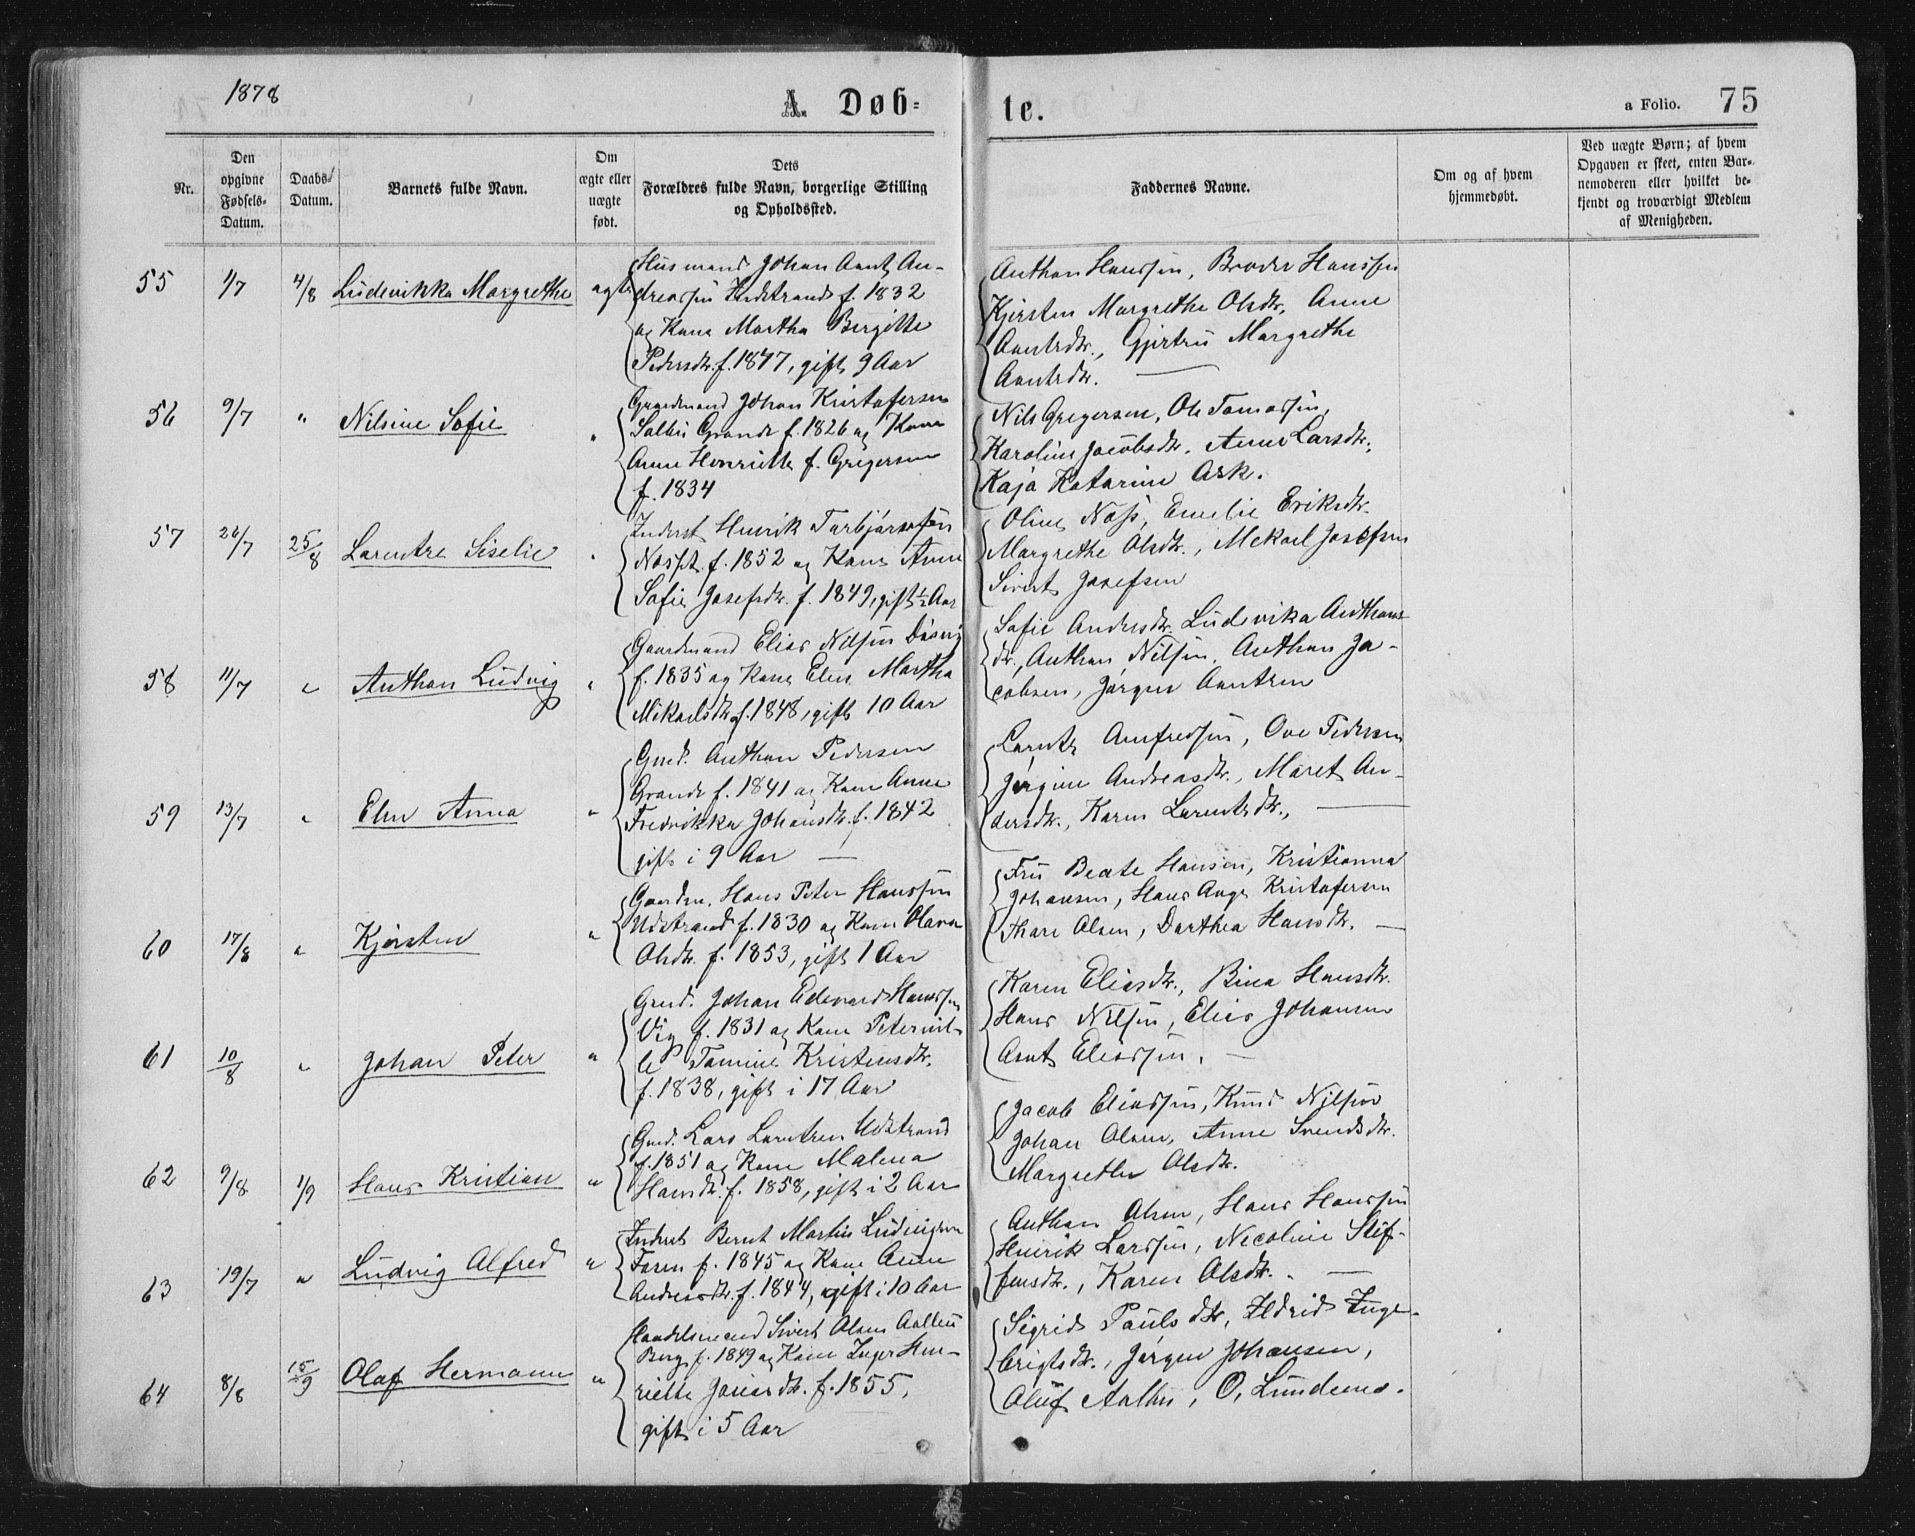 1878
A. Døb=
te.
a Folio. 75
Nr.
Den opgivne Fødsels-Datum.
Daabs-Datum.
Barnets fulde Navn.
Om ægte eller uægte født.
Dets Forældres fulde Navn, borgerlige Stilling og Opholdssted.
Faddernes Navne.
Om og af hvem hjemmedøbt.
Ved uægte Børn; af hvem Opgaven er skeet, enten Barnemoderen eller hvilket bekjendt og troværdigt Medlem af Menigheden.
55 1/7 4/8 Ludevikka Margrethe ægte
Husmand Johan Arnt An-
dreassen Udstrand f. 1832
og Kone Martha Bergitte
Pedersdtr. f. 1847, gift 9 Aar
Anthon Hanssen, Broder Hanssen
Kjersten Margrethe Olsdtr, Anne
Arntsdtr., Gjertru Margrethe
Arntsdtr.
56 9/7 " Nilsine Sofie "
Gaardmand Johan Kristofersen
Grande f. 1826 og Kone
Anne Henriette f. Gregersen
f. 1834
Nils Gregersen, Ole Tomassen,
Karoline Jacobsdtr. Anne Larsdtr.
Kaja Katarine Ask.
57 20/7 25/8 Larentze Siselie "
Inderst Henrik Torbjørnsen
f. 1852 og Kone Anne
Sofie Josefsdtr. f. 1849, gift 1/2 Aar
Oline Næss, Emelie Eriksdtr.
Margrethe Olsdtr., Mekael Josefsen
Sivert Josefsen
58 11/7 " Anthon Ludvig "
Gaardmand Elias Nilsen
f. 1835 og Kone Elen Martha
Mikaelsdtr f. 1848, gift 10 Aar
Sofie Andersdtr. Ludevika Anthons-
dtr., Anthon Nilsen, Anthon Ja-
cobsen, Jørgen
59 13/7 " Elen Anna "
Gmd. Anthon Pedersen
Grande f. 1841 og Kone Anne
Fredrikka Johansdtr. f. 1842
gift i 9 Aar
Larentz Arnfredsen, Ove Pedersen
Jørgine Andreasdtr., Maret An-
dersdtr., Karen Larentsdtr.,
60 17/8 " Kjersten "
Gaardm. Hans Peter Hanssen
Udstrand f. 1830 og Kone Olava
Olsdtr. f. 1853, gift 1 Aar
Fru Beate Hansen, Kristianna
Johansen, Hans Aage Kristofersen
Thore Olsen, Dorthea Hansdtr.
61 10/8 " Johan Peter "
Gmd. Johan Edevard Hanssen
Vig f. 1831 og Kone Peternil-
le Tomine Kristensdtr.
f. 1838, gift i 17 Aar
Karen Eliasdtr., Bina Hansdtr.
Hans Nilsen, Elias Johansen
Arnt Eliassen.
62 9/8 1/9 Hans Kristian "
Gmd. Lars Larentsen Udstrand
f. 1851 og Kone Malena
Hansdtr. f. 1858, gift i 2 Aar
Jacob Eliassen, Knud Nilsen
Johan Olsen, Anne Svendsdtr.
Margrethe Olsdtr.
63 19/7 " Ludvig Alfred "
Inderst Bernt Martin Ludvigsen
Foren f. 1845 og Kone Anne
Andreasdtr. f. 1844, gift i 10 Aar
Anthon Olsen, Hans Hanssen
Henrik Larssen, Necoline Stef-
fensdtr., Karen Olsdtr.
64 8/8 15/9 Olaf Hermann "
Handelsmand Sivert Olsen Aalbu
Berg f. 1849 og Kone Inger Hen-
riette f. 1855,
gift i 5 Aar
Sigrid Paulsdtr, Ildrid Inge-
brigtsdtr., Jørgen Johansen,
Oluf Aalbu, O. Lundemo.